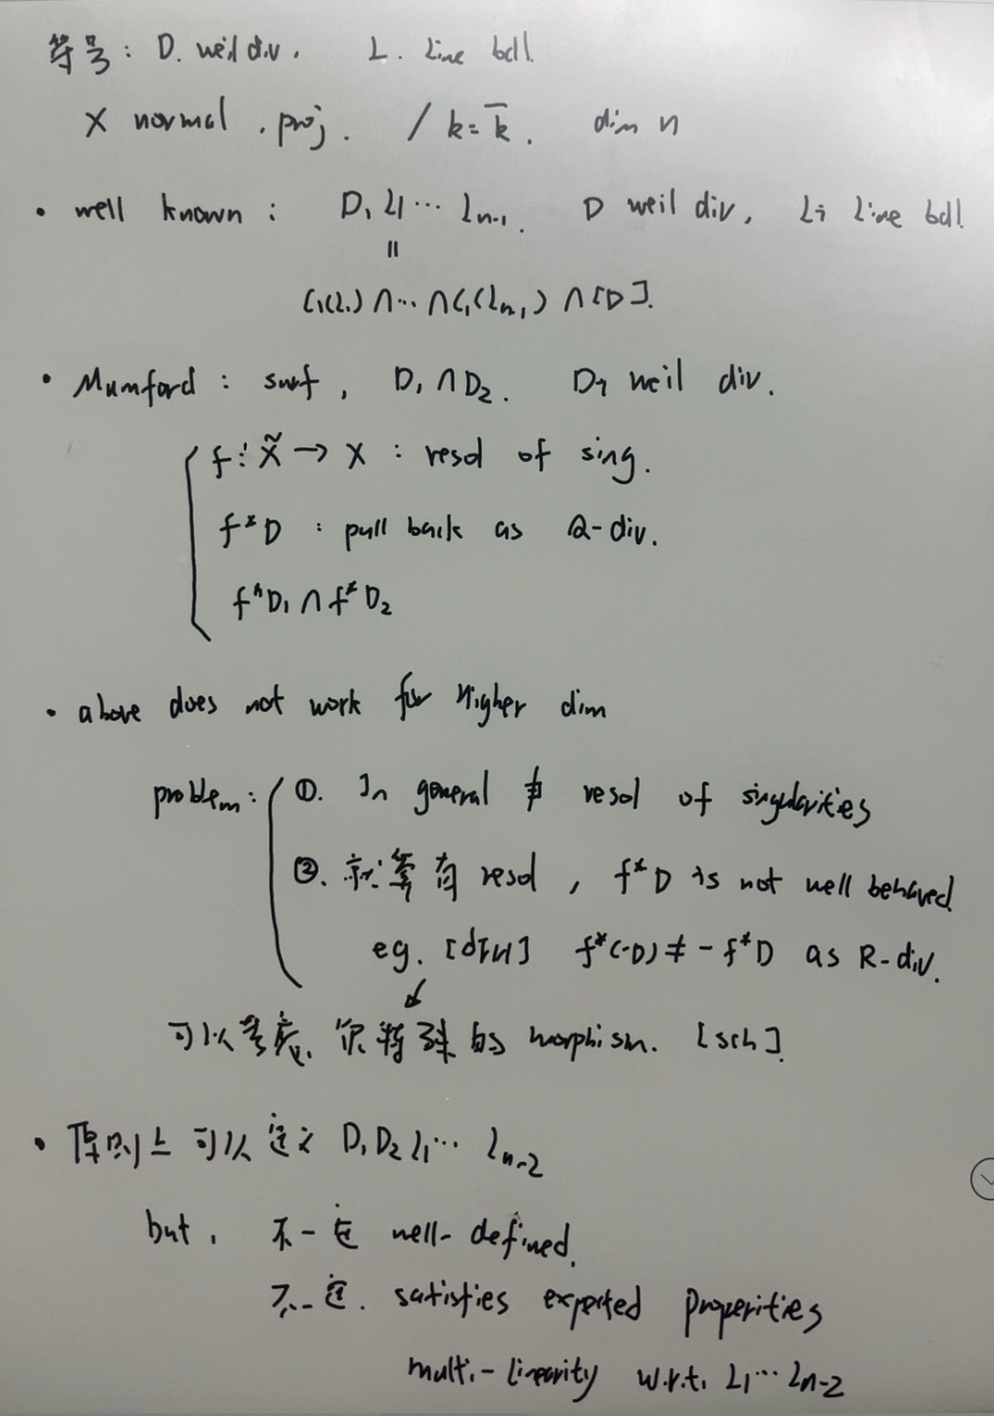 符号: D. weil div. L. Line bdl.
X normal, proj. / k=k̄. dim n
• well known: D, L1 ⋯ Ln-1. D weil div, Li Line bdl.
||
C1(L1) ∩ ⋯ ∩ C1(Ln-1) ∩ [D].
• Mumford: surf, D1 ∩ D2. Di weil div.
f: X̃ → X: resol of sing.
f*D: pull back as Q-div.
f*D1 ∩ f*D2
• above does not work for Higher dim
problem: ①. In general ∄ resol of singularities
②. 就算有 resol, f*D is not well behaved
eg. [dFH] f*(-D) ≠ -f*D as R-div.
可以考虑 很特殊的 morphism. [sch].
• 原则上 可以 定义 D1 D2 L1 ⋯ Ln-2
but, 不一定 well-defined.
不一定. satisfies expected properities
multi-linearity w.r.t. L1 ⋯ Ln-2